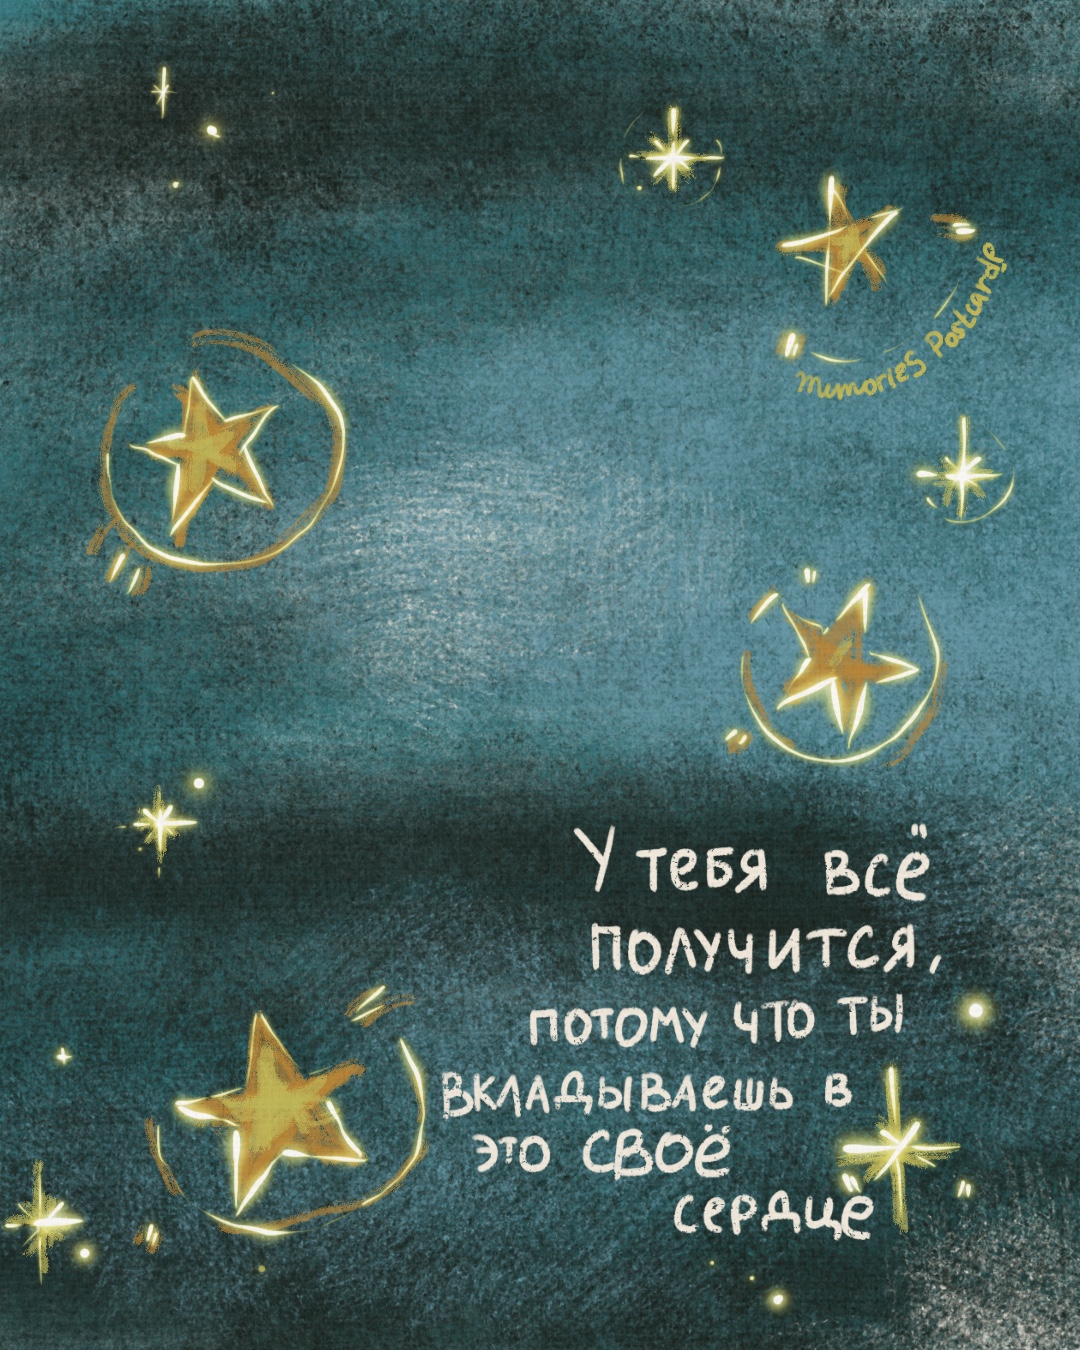 Memories Postcards
У тебя всё
получится,
потому что ты
вкладываешь в
это своё
сердцё